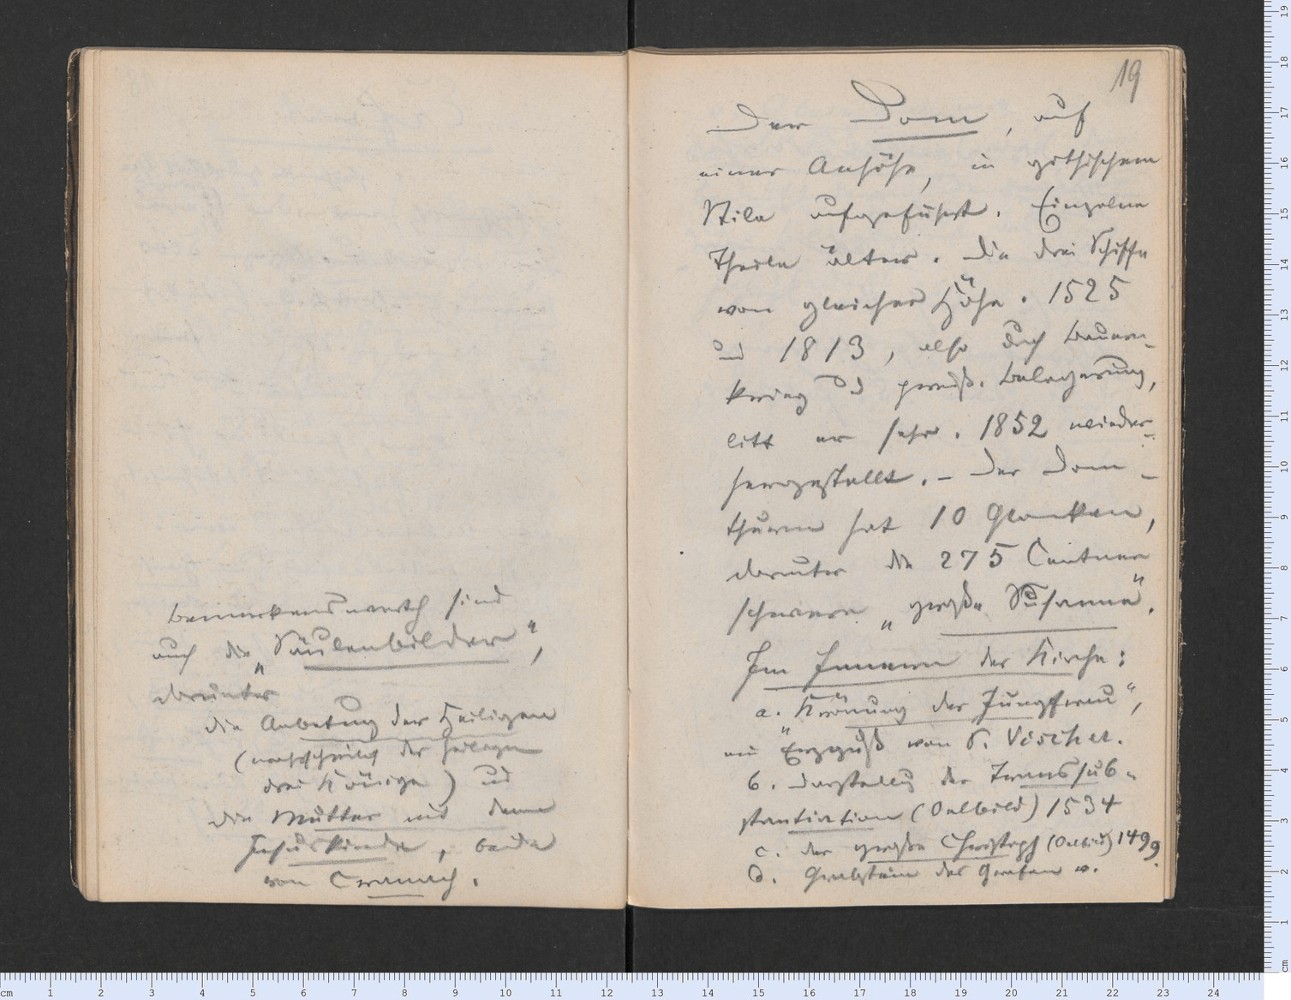 bemerkenswerth sind
auch die „Säulenbilder“,
darunter
die Anbetung der Heiligen
(wahrscheinlich der heiligen
drei Könige) und
die Mutter mit dem
Jesuskinde, beide
von Cranach.
19
Der Dom, auf
einer Anhöhe, in gothischem
Stile aufgeführt. Einzelne
Theile älter. Die drei Schiffe
von gleicher Höhe. 1525
und 1813, also durch Bauern-
krieg und preuß. Belagerung,
litt er sehr. 1852 wieder-
hergestellt. – Der Dom-
thurm hat 10 Glocken,
darunter die 275 Centner
schwere „große Susanna“.
Im Innern der Kirche:
a. „Krönung der Jungfrau“,
ein Erzguß von P. Vischer.
b. Darstellung der Transsub-
stantiation (Oelbild) 1534
c. der große Christoph (Oelbild) 1499.
d. Grabstein des Grafen v.